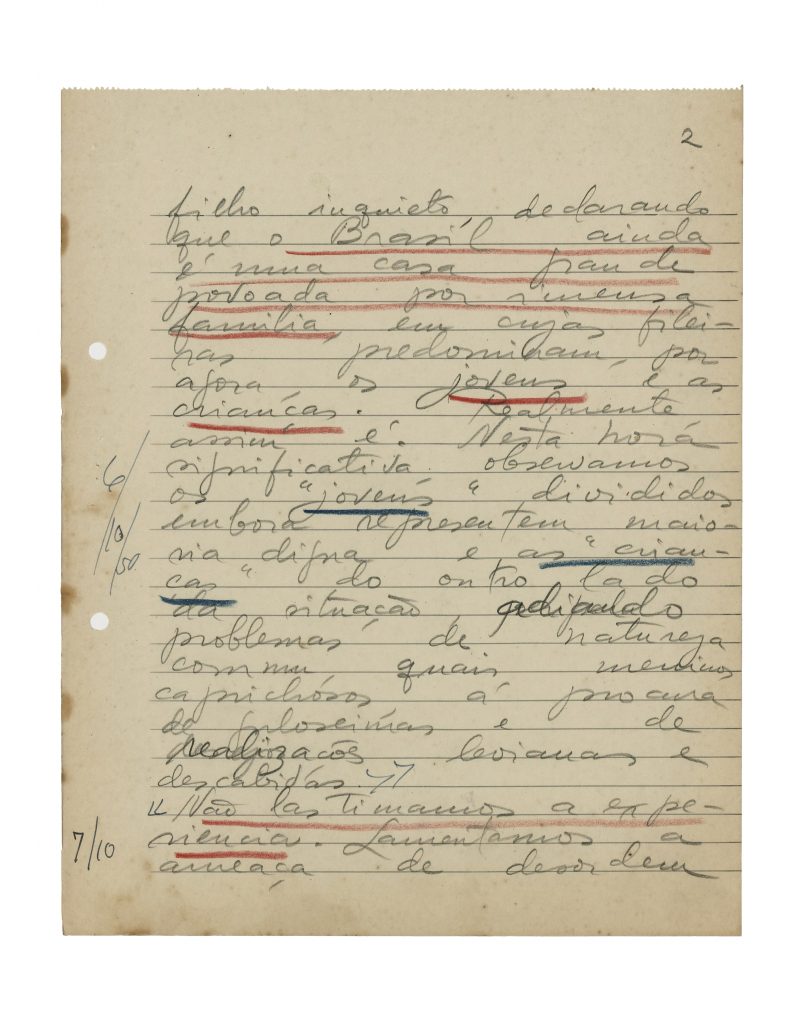 2
filho inquieto declarando
que o Brasil ainda
é uma casa grande
povoada por imensa
família, em cujas filei-
ras predominam, por
agora os jovens e as
crianças. Realmente
assim é. Nesta hora
significativa observamos
os "jovens" divididos
embora representem maio-
ria digna e as "crian-
ças" do outro lado
da situação,
problemas de natureza
commu quais meninos
caprichósos á procura
de guloseimas e de
realizações levianas e
descabidas.
Não lastimamos a expe-
riencia. Lamentamos a
ameaça de desordem
6/10/50
7/10